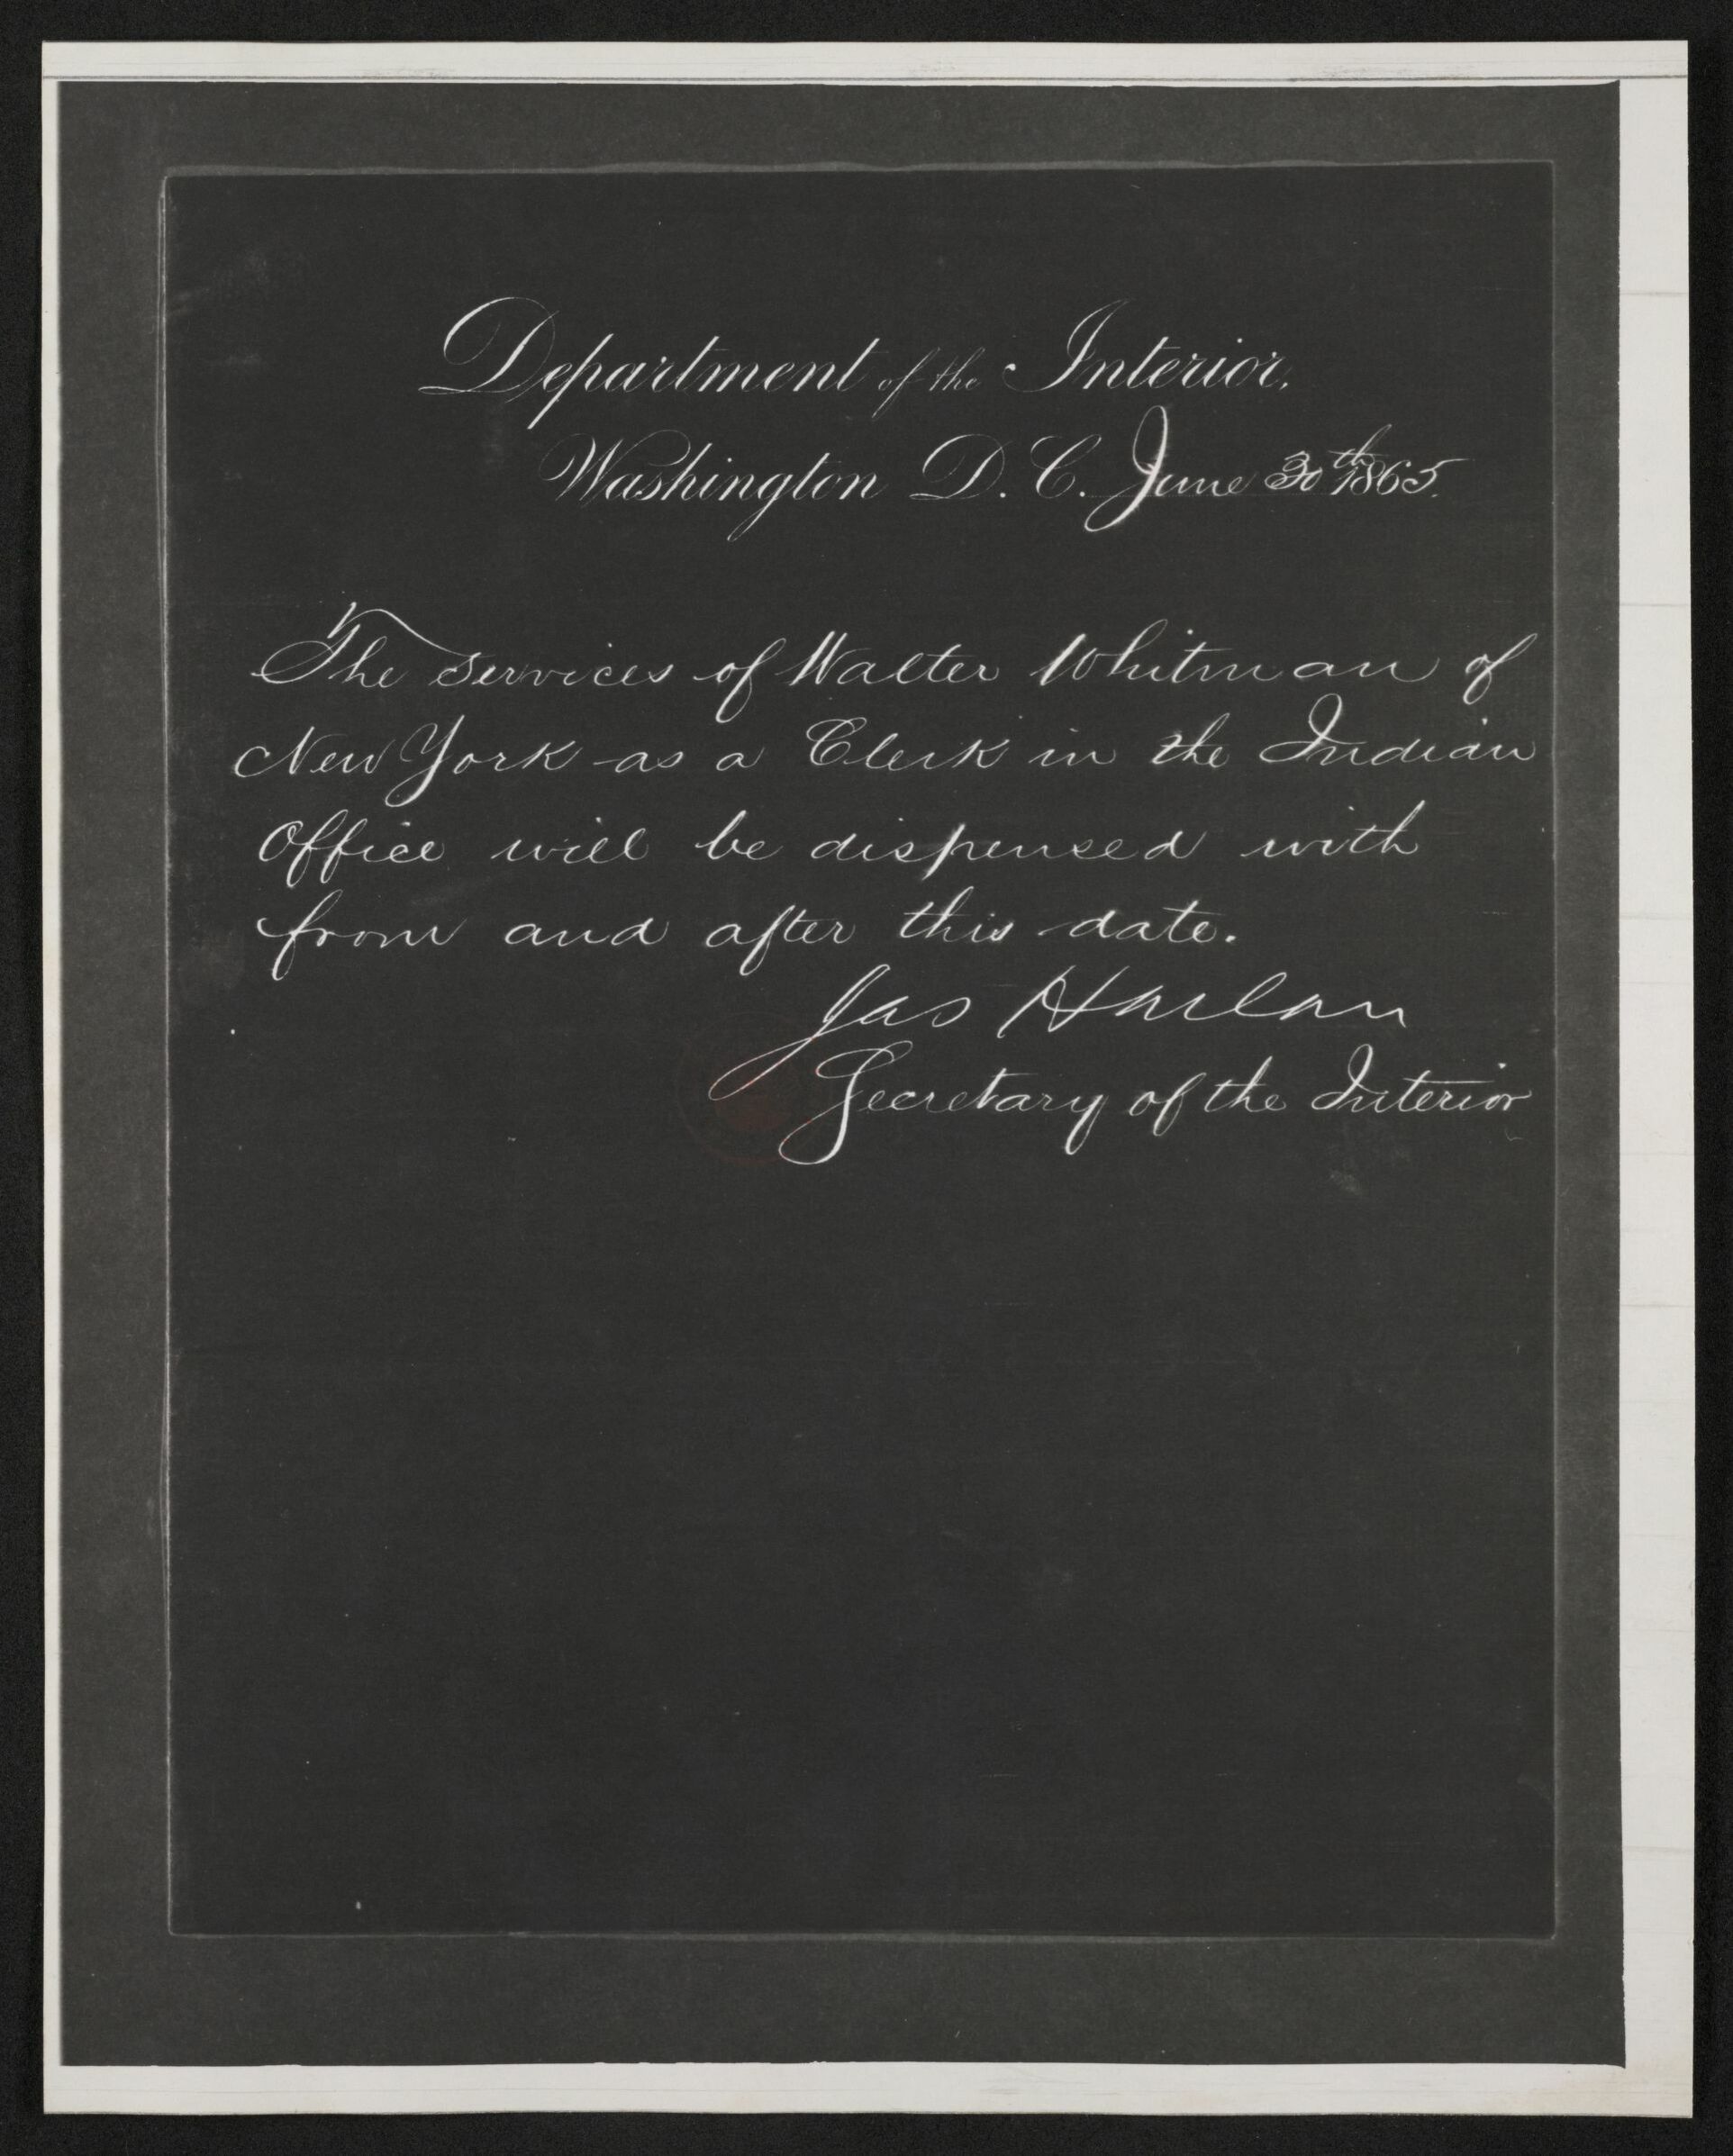 Department of the Interior,
Washington D. C. June 30th 1865.
The services of Walter Whitman of
New York as a Clerk in the Indian
Office will be dispensed with
from and after this date.
Jas Harlan
Secretary of the Interior